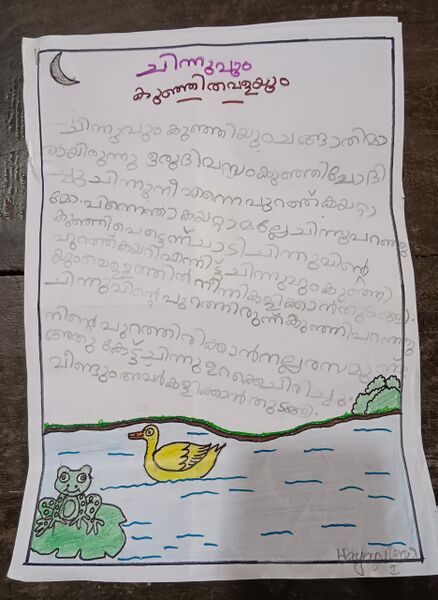 ചിന്നുവും
കുഞ്ഞിതവളയും
ചിന്നുവും കുഞ്ഞിയും ചങ്ങാതിമാ
രായിരുന്നു ഒരു ദിവസം കുഞ്ഞി ചോദി
ച്ചു ചിന്നു നീ എന്നെ പുറത്ത് കയറ്റാ
മോ. പിന്നെന്താ കയറ്റാമല്ലോ ചിന്നു പറഞ്ഞു
കുഞ്ഞി പെട്ടെന്ന് ചാടി ചിന്നുവിന്റെ
പുറത്ത് കയറി എന്നിട്ട് ചിന്നുവും കുഞ്ഞി
യും വെള്ളത്തിൽ നീന്തികളിക്കാൻ തുടങ്ങി.
ചിന്നുവിന്റെ പുറത്തിരുന്ന് കുഞ്ഞി പറഞ്ഞു
നിന്റെ പുറത്തിരിക്കാൻ നല്ല രസമുണ്ട്
അതു കേട്ട് ചിന്നു ഉറക്കെ ചിരിച്ചു
വീണ്ടും അവർ കളിക്കാൻ തുടങ്ങി.
I